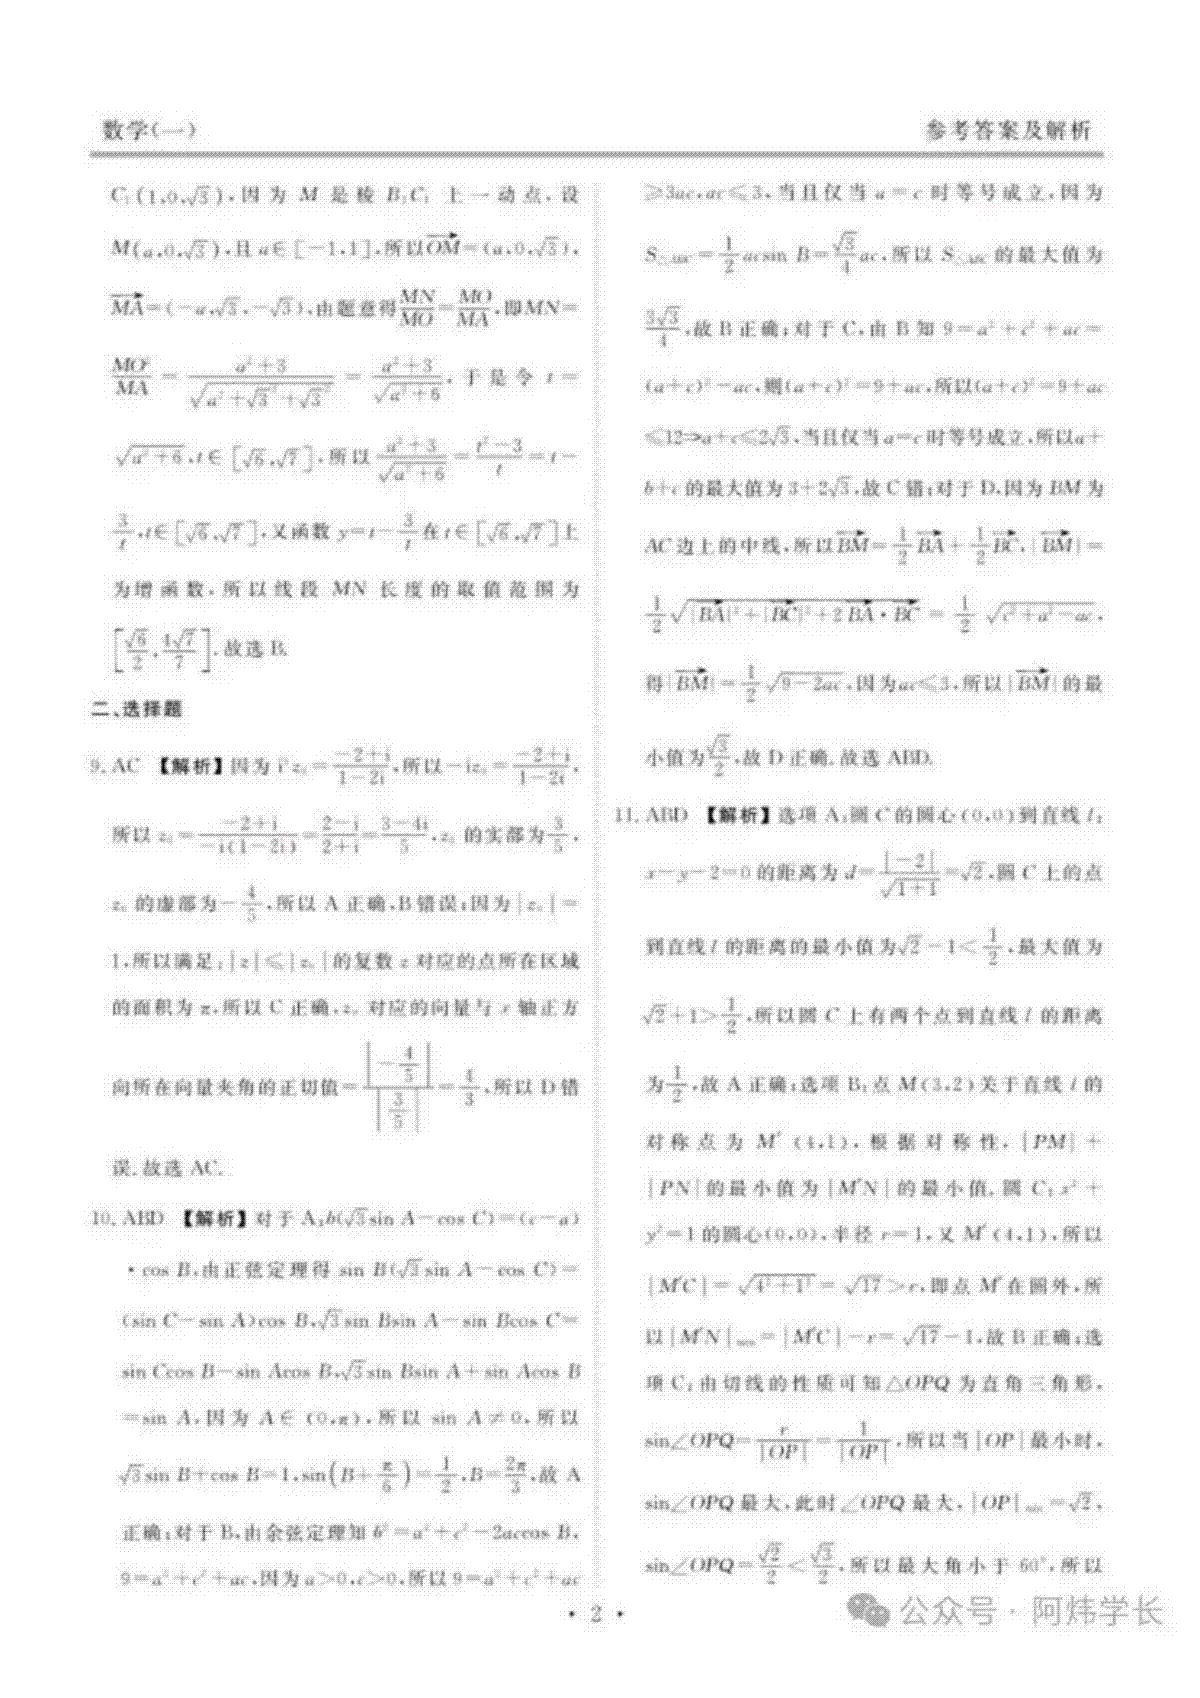 数学(一)
参考答案及解析
C₁(1,0,√3),因为 M 是棱 B₁C₁ 上一动点,设
M(a,0,√3),且 a∈[-1,1],所以OM=(a,0,√3),
MA=(-a,√3,-√3),由题意得MN/MO=MO/MA,即MN=
MO²/MA=(a²+3)/√(a²+√3²+√3²)=(a²+3)/√(a²+6),于是令 t=
√(a²+6),t∈[√6,√7],所以(a²+3)/√(a²+6)=(t²-3)/t=t-
3/t,t∈[√6,√7],又函数 y=t-3/t在t∈[√6,√7]上
为增函数,所以线段 MN 长度的取值范围为
[√6/2,4√7/7].故选 B.
二、选择题
9. AC 【解析】因为 i³z₀=(-2+i)/(1-2i),所以-iz₀=(-2+i)/(1-2i),
所以 z₀=(-2+i)/(-i(1-2i))=(2-i)/(2+i)=(3-4i)/5,z₀ 的实部为3/5,
z₀ 的虚部为-4/5,所以 A 正确,B 错误;因为|z₀|=
1,所以满足:|z|≤|z₀|的复数 z 对应的点所在区域
的面积为 π,所以 C 正确,z₀ 对应的向量与 x 轴正方
向所在向量夹角的正切值=|-4/5|/|3/5|=4/3,所以 D 错
误.故选 AC.
10. ABD 【解析】对于 A,b(√3sin A-cos C)=(c-a)
·cos B,由正弦定理得 sin B(√3sin A-cos C)=
(sin C-sin A)cos B,√3sin Bsin A-sin Bcos C=
sin Ccos B-sin Acos B,√3sin Bsin A+sin Acos B
=sin A,因为 A∈(0,π),所以 sin A≠0,所以
√3sin B+cos B=1,sin(B+π/6)=1/2,B=2π/3,故 A
正确;对于 B,由余弦定理知 b²=a²+c²-2accos B,
9=a²+c²+ac,因为 a>0,c>0,所以 9=a²+c²+ac
≥3ac,ac≤3,当且仅当 a=c 时等号成立,因为
S△ABC=1/2acsin B=√3/4ac,所以 S△ABC的最大值为
3√3/4,故 B 正确;对于 C,由 B 知 9=a²+c²+ac=
(a+c)²-ac,则(a+c)²=9+ac,所以(a+c)²=9+ac
≤12⇒a+c≤2√3,当且仅当 a=c 时等号成立,所以a+
b+c 的最大值为 3+2√3,故 C 错;对于 D,因为 BM 为
AC 边上的中线,所以BM=1/2BA+1/2BC,|BM|=
1/2√(|BA|²+|BC|²+2BA·BC)=1/2√(c²+a²-ac),
得|BM|=1/2√(9-2ac),因为ac≤3,所以|BM|的最
小值为√3/2,故 D 正确.故选 ABD.
11. ABD 【解析】选项 A:圆 C 的圆心(0,0)到直线 l:
x-y-2=0 的距离为 d=|-2|/√(1+1)=√2,圆 C 上的点
到直线 l 的距离的最小值为√2-1<1/2,最大值为
√2+1>1/2,所以圆 C 上有两个点到直线 l 的距离
为1/2,故 A 正确;选项 B:点 M(3,2)关于直线 l 的
对称点为 M′(4,1),根据对称性,|PM|+
|PN|的最小值为|M′N|的最小值.圆 C:x²+
y²=1 的圆心(0,0),半径 r=1,又 M′(4,1),所以
|M′C|=√(4²+1²)=√17>r,即点 M′在圆外,所
以|M′N|min=|M′C|-r=√17-1,故 B 正确;选
项 C:由切线的性质可知△OPQ 为直角三角形,
sin∠OPQ=r/|OP|=1/|OP|,所以当|OP|最小时,
sin∠OPQ 最大,此时∠OPQ 最大,|OP|min=√2,
sin∠OPQ=√2/2<√3/2,所以最大角小于 60°,所以
· 2 ·
公众号 · 阿炜学长